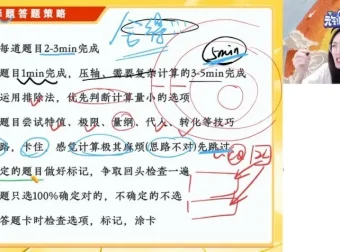 解题答题策略
每道题目2-3min完成
题目1min完成，压轴、需要复杂计算的3-5min完成
运用排除法，优先判断计算量小的选项
题目尝试特值、极限、量纲、代入、转化等技巧
路，卡住，感觉计算极其麻烦(思路不对)先跳过
定的题目做好标记，争取回头检查一遍
题只选100%确定对的，不确定的不选
答题卡时检查选项，标记，涂卡
5min